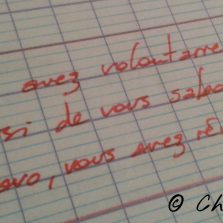 avez volontaire
si de vous
avo, vous avez ré
© Ch